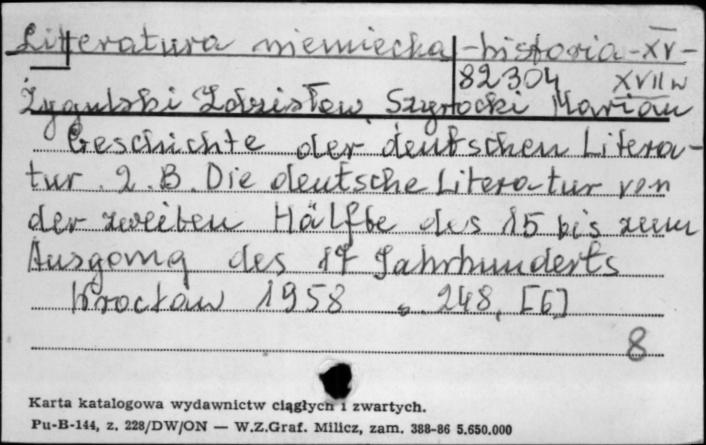 Literatura niemiecka - historia - XV -
82304 XVII w
Żygulski Zdzisław, Szyrocki Marian
Geschichte der deutschen Litera-
tur. 2. B. Die deutsche Literatur von
der zweiten Hälfte des 15 bis zum
Ausgang des 17 Jahrhunderts
Wrocław 1958 s. 248, [6]
8
Karta katalogowa wydawnictw ciągłych i zwartych.
Pu-B-144, z. 228/DW/ON — W.Z.Graf. Milicz, zam. 388-86 5.650.000